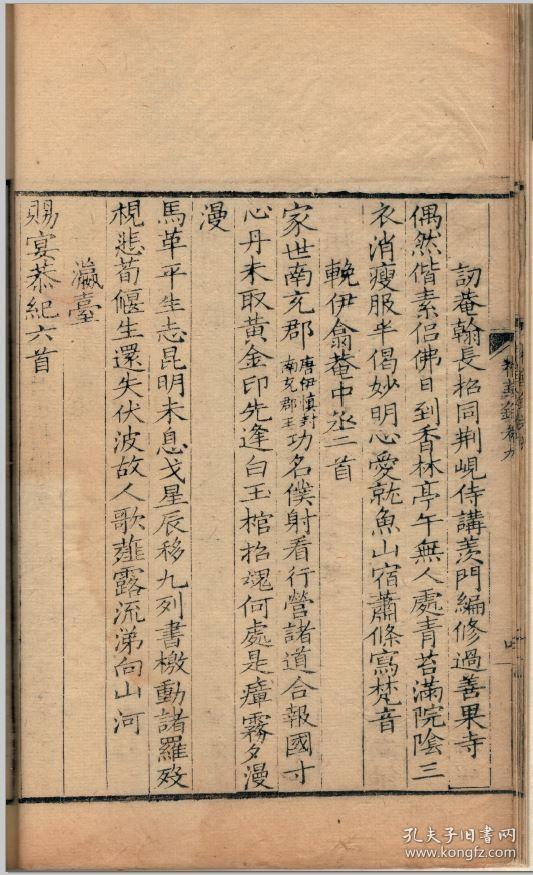 訒菴翰長招同荆峴侍講羨門編修過善果寺
偶然偕素侣佛日到香林亭午無人處青苔滿院陰三
衣消瘦服半偈妙明心愛就魚山宿蕭條寫梵音
輓伊翕菴中丞二首
家世南充郡唐伊慎封南充郡王功名僕射看行營諸道合報國寸
心丹未取黃金印先逢白玉棺招魂何處是瘴霧夕漫
漫
馬革平生志昆明未息戈星辰移九列書檄動諸羅歿
槻悲荀偃生還失伏波故人歌薤露流涕向山河
瀛臺
賜宴恭紀六首
精華錄卷九
孔夫子旧书网
www.kongfz.com